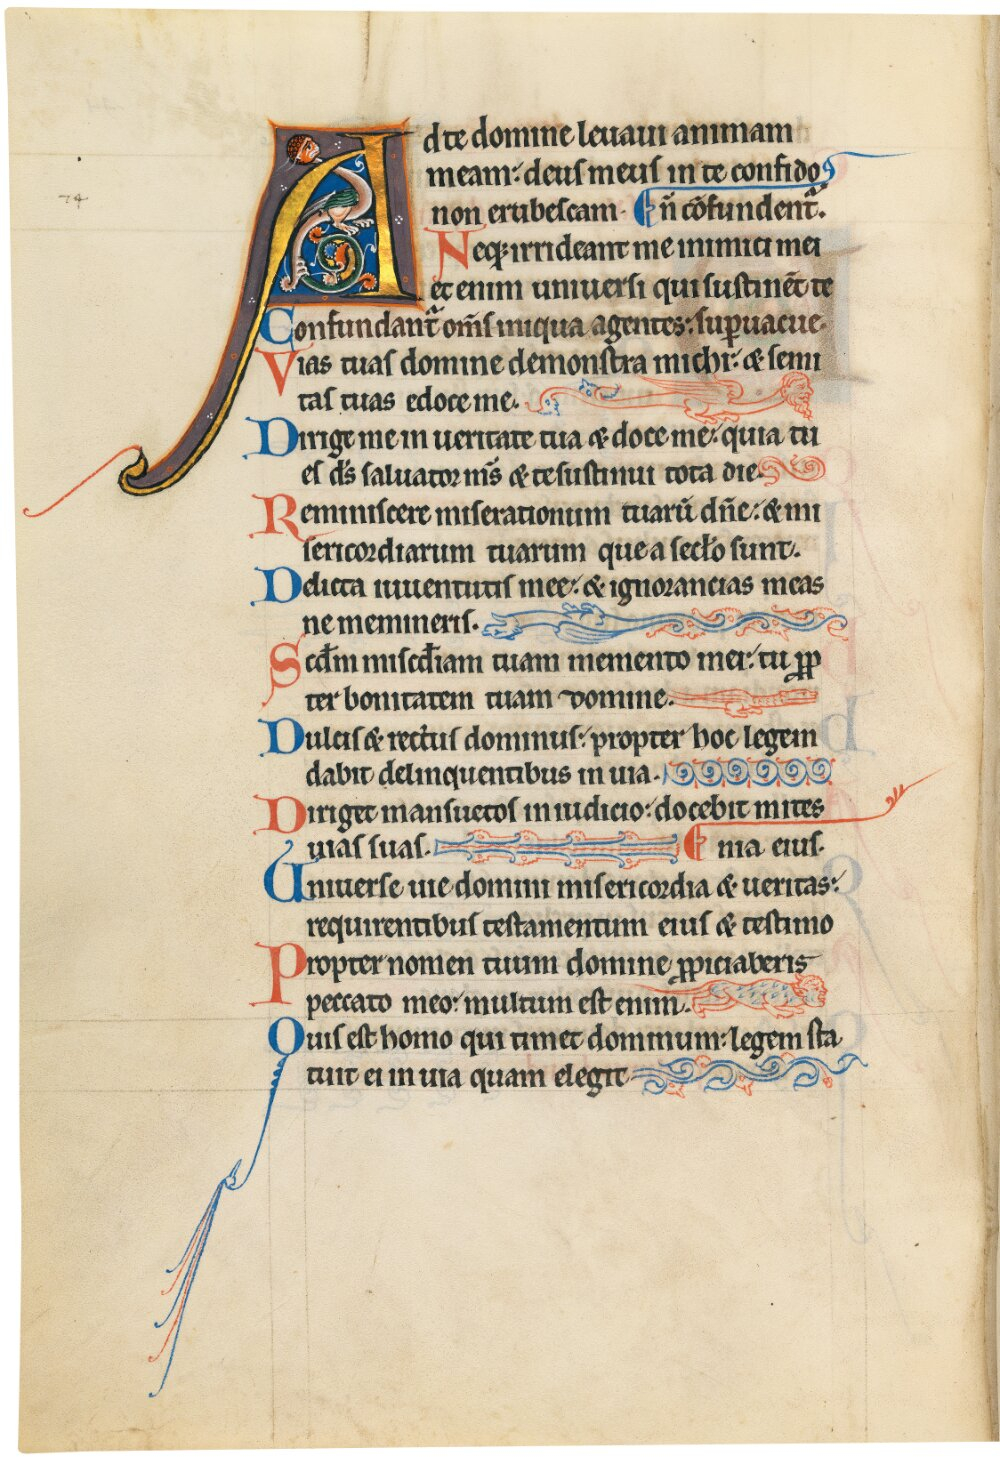 Ad te domine leuaui animam
meam: deus meus in te confido
non erubescam. En̄ cōfundent᷑.
Neq; irrideant me inimici mei
etenim uniuersi qui sustinēt te
Confundant᷑ om̄s iniqua agentes: sup̱uacue.
Vias tuas domine demonstra michi: & semi
tas tuas edoce me.
Dirige me in ueritate tua & doce me: quia tu
es ds̄ saluator ms̄ & te sustinui tota die.
Reminiscere miserationum tuarū dn̄e: & mi
sericordiarum tuarum que a secl̄o sunt.
Delicta iuuentutis mee: & ignorancias meas
ne memineris.
Scd̄m misc̄diam tuam memento mei: tu ꝓp
ter bonitatem tuam domine.
Dulcis & rectus dominus: propter hoc legem
dabit delinquentibus in uia.
Diriget mansuetos in iudicio: docebit mites
uias suas. E nia eius.
Uniuerse uie domini misericordia & ueritas:
requirentibus testamentum eius & testimo
Propter nomen tuum domine ꝓpiciaberis
peccato meo: multum est enim.
Quis est homo qui timet dominum: legem sta
tuit ei in uia quam elegit